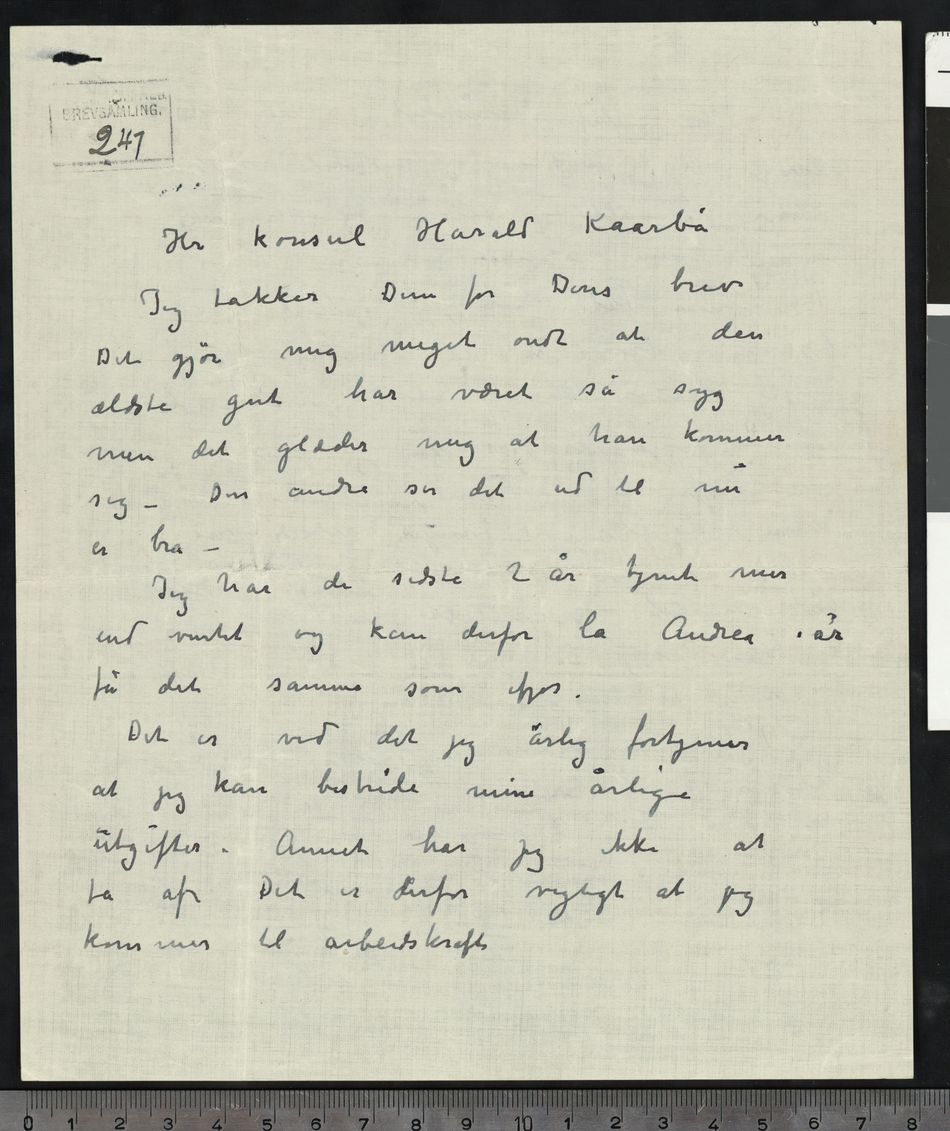 BREVSAMLING.
247
Hr konsul Harald Kaarbö
Jeg takker Dem for Deres brev
Det gjör mig meget ondt at den
ældste gut har været så syg
men det glæder mig at han kommer
sig – Den andre ser det ud til nu
er bra –
Jeg har de sidste 2 år tjent mer
end ventet og kan derfor la Andrea i år
få det samme som ifjor.
Det er ved det jeg årlig fortjener
at jeg kan bestride mine årlige
utgifter. Annet har jeg ikke at
ta af. Det er derfor vigtigt at jeg
kommer til arbeidskrefter